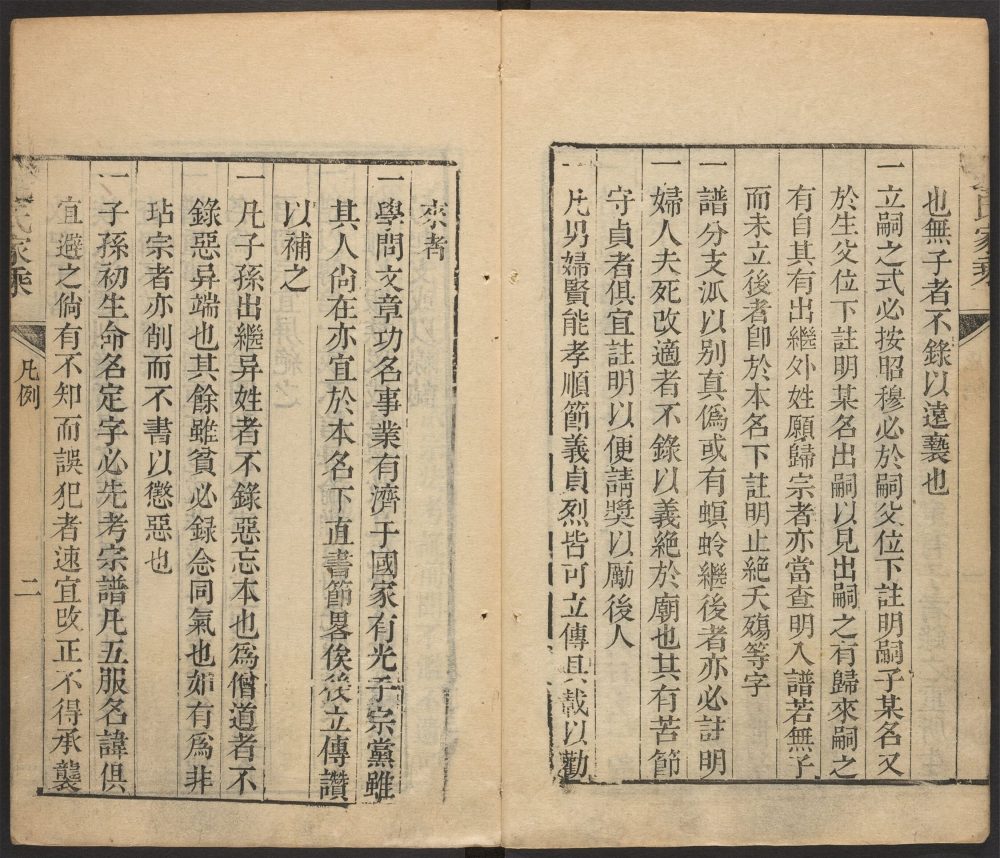 氏家乘
也無子者不錄以遠褻也
一立嗣之式必按昭穆必於嗣父位下註明嗣子某名又
於生父位下註明某名出嗣以見出嗣之有歸來嗣之
有自其有出繼外姓願歸宗者亦當查明入譜若無子
而未立後者卽於本名下註明止絕夭殤等字
一譜分支派以别真僞或有螟蛉繼後者亦必註明
一婦人夫死改適者不錄以義絕於廟也其有苦節
守貞者俱宜註明以便請獎以勵後人
一凡男婦賢能孝順節義貞烈皆可立傳具載以勸
來者
一學問文章功名事業有濟于國家有光于宗黨雖
其人尚在亦宜於本名下直書節畧俟後立傳讚
以補之
一凡子孫出繼异姓者不錄惡忘本也爲僧道者不
錄惡异端也其餘雖貧必録念同氣也如有爲非
玷宗者亦削而不書以懲惡也
一子孫初生命名定字必先考宗譜凡五服名諱俱
宜避之倘有不知而誤犯者速宜改正不得承襲
氏家乘
凡例
二